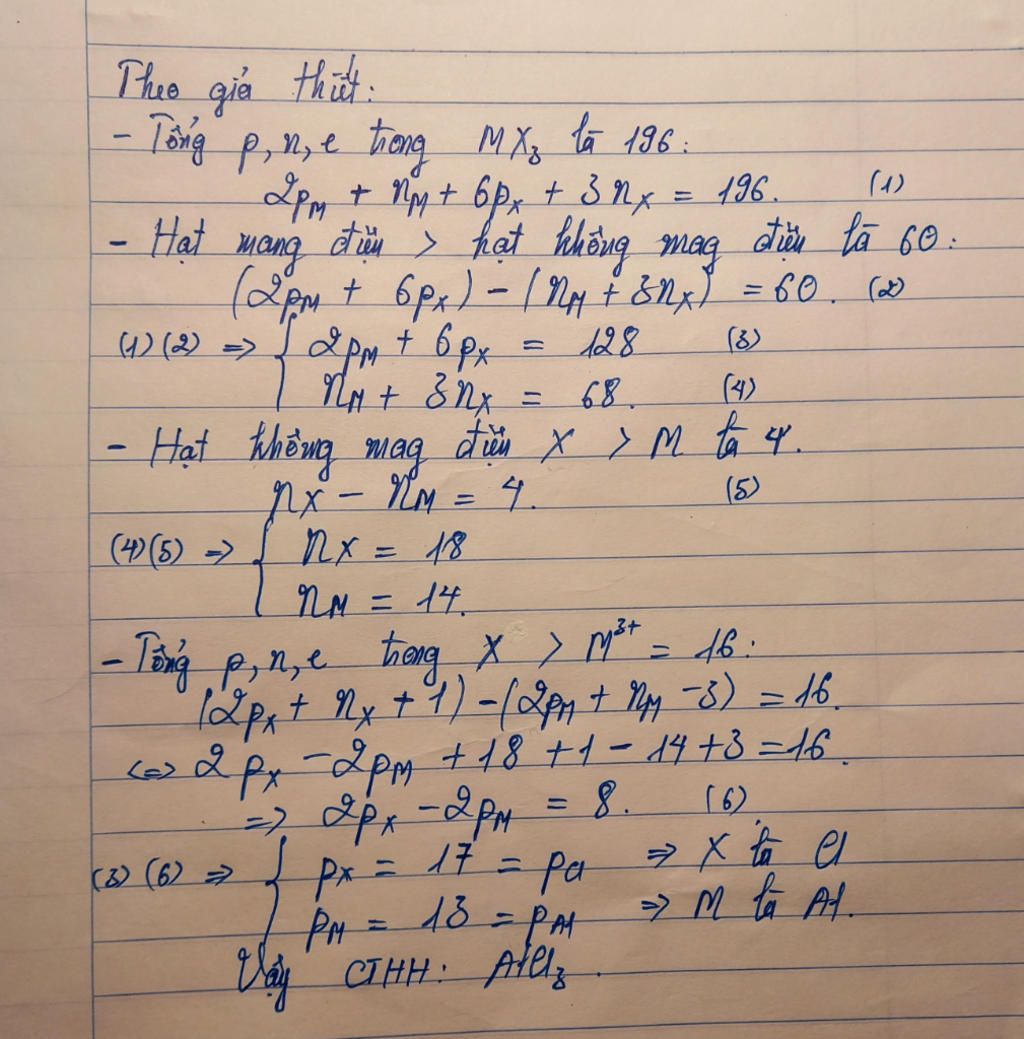 Theo giả thiết:
- Tổng p, n, e trong MX₃ là 196:
2pM + nM + 6pX + 3nX = 196. (1)
- Hạt mang điện > hạt không mag điện là 60:
(2pM + 6pX) - (nM + 3nX) = 60. (2)
(1) (2) => { 2pM + 6pX = 128 (3)
nM + 3nX = 68. (4)
- Hạt không mag điện X > M là 4.
nX - nM = 4. (5)
(4) (5) => { nX = 18
nM = 14.
- Tổng p, n, e trong X > M³⁺ = 16:
(2pX + nX + 1) - (2pM + nM - 3) = 16.
<=> 2pX - 2pM + 18 + 1 - 14 + 3 = 16.
=> 2pX - 2pM = 8. (6)
(3) (6) => { pX = 17 = pCl => X là Cl
pM = 13 = pAl => M là Al.
Vậy CTHH: AlCl₃.